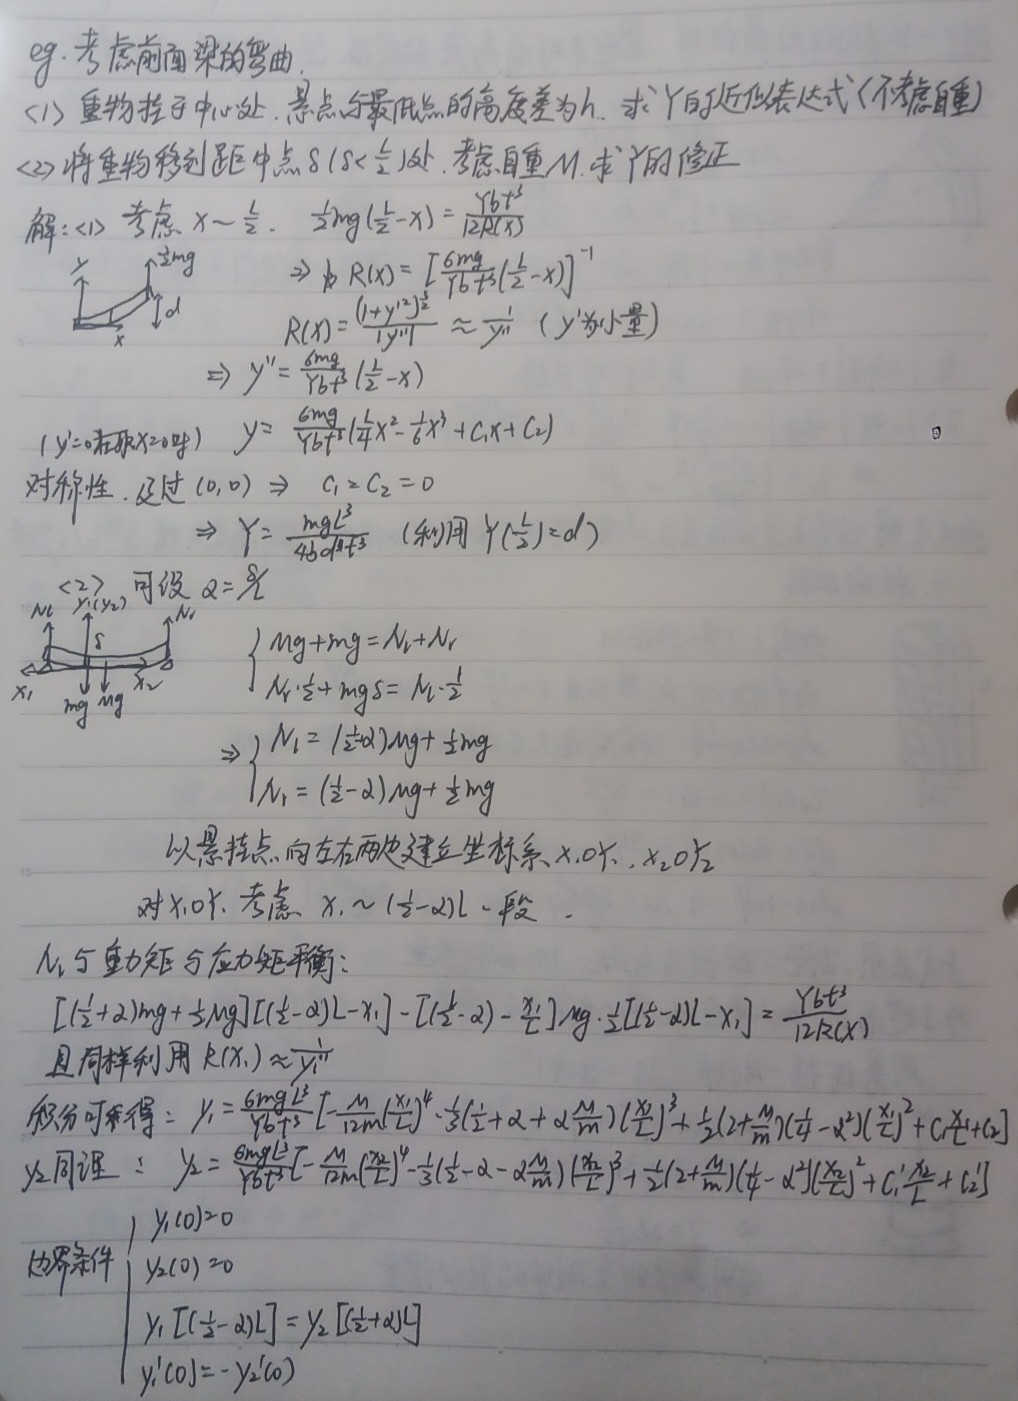 eg. 考虑前面梁的弯曲.
<1> 重物挂于中心处. 悬点与最低点的高度差为h. 求Y的近似表达式(不考虑自重)
<2> 将重物移到距中点δ(δ<L/2)处. 考虑自重M. 求Y的修正
解: <1> 考虑 x~L/2. ½mg(L/2-x) = Ybt³/12R(x)
y ½mg d x
⇒ R(x) = [6mg/Ybt³(L/2-x)]⁻¹
R(x) = (1+y'²)^(3/2)/|y''| ≈ 1/y'' (y'为小量)
⇒ y'' = 6mg/Ybt³(L/2-x)
(y'=0在取x=0时) y = 6mg/Ybt³(L/4x²-1/6x³+C₁x+C₂)
对称性. 及过(0,0) ⇒ C₁=C₂=0
⇒ Y = mgL³/4bdt³ (利用Y(L/2)=d)
<2> 可设 α=δ/L
Nₗ y₁(y₂) Nᵣ δ x₁ mg Mg x₂
{ Mg+mg = Nₗ+Nᵣ
Nᵣ·L/2+mgδ = Nₗ·L/2
⇒ { Nₗ = (½+α)Mg+½mg
Nᵣ = (½-α)Mg+½mg
以悬挂点向左右两边建立坐标系 x₁OY₁, x₂OY₂
对x₁OY₁ 考虑 x₁~(½-α)L 一段.
Nₗ与重力矩与应力矩平衡:
[(½+α)mg+½Mg][(½-α)L-x₁]-[(½-α)-x₁/L]Mg·½[(½-α)L-x₁] = Ybt³/12R(x)
且同样利用R(x₁)≈1/y₁''
积分可求得: y₁ = 6mgL³/Ybt³[-M/12m(x₁/L)⁴-⅓(½+α+αM/m)(x₁/L)³+½(2+M/m)(¼-α²)(x₁/L)²+C₁x₁/L+C₂]
y₂同理: y₂ = 6mgL³/Ybt³[-M/12m(x₂/L)⁴-⅓(½-α-αM/m)(x₂/L)³+½(2+M/m)(¼-α²)(x₂/L)²+C₁'x₂/L+C₂']
边界条件 { y₁(0)=0
y₂(0)=0
y₁[(½-α)L] = y₂[(½+α)L]
y₁'(0) = -y₂'(0)